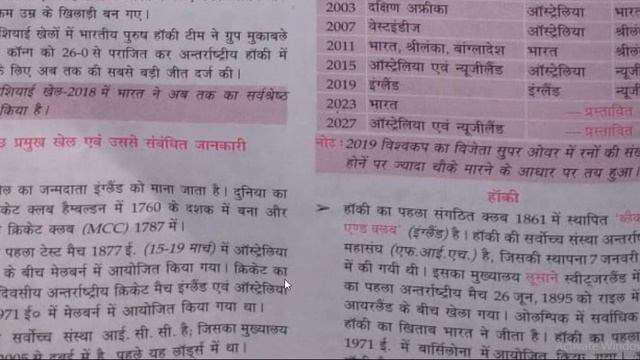 कम उम्र के खिलाड़ी बन गए।
शियाई खेलों में भारतीय पुरुष हॉकी टीम ने ग्रुप मुकाबले
कॉन्ग को 26-0 से पराजित कर अन्तर्राष्ट्रीय हॉकी में
के लिए अब तक की सबसे बड़ी जीत दर्ज की।
शियाई खेल-2018 में भारत ने अब तक का सर्वश्रेष्ठ
किया है।
प्रमुख खेल एवं उससे संबंधित जानकारी
ल का जन्मदाता इंग्लैंड को माना जाता है। दुनिया का
केट क्लब हैम्बल्डन में 1760 के दशक में बना और
क्रिकेट क्लब (MCC) 1787 में।
पहला टेस्ट मैच 1877 ई. (15-19 मार्च) में ऑस्ट्रेलिया
के बीच मेलबर्न में आयोजित किया गया। क्रिकेट का
दिवसीय अन्तर्राष्ट्रीय क्रिकेट मैच इंग्लैंड एवं ऑस्ट्रेलिया
971 ई० में मेलबर्न में आयोजित किया गया था।
सर्वोच्च संस्था आई. सी. सी. है; जिसका मुख्यालय
2005 से दुबई में है, पहले यह लॉर्ड्स में था।
2003 दक्षिण अफ्रीका ऑस्ट्रेलिया भार
2007 वेस्टइंडीज ऑस्ट्रेलिया श्रील
2011 भारत, श्रीलंका, बांग्लादेश भारत श्रील
2015 ऑस्ट्रेलिया एवं न्यूजीलैंड ऑस्ट्रेलिया न्यूज
2019 इंग्लैंड इंग्लैंड न्यूज
2023 भारत — प्रस्तावित
2027 ऑस्ट्रेलिया एवं न्यूजीलैंड — प्रस्तावित
नोट : 2019 विश्वकप का विजेता सुपर ओवर में रनों की संख
होनें पर ज्यादा चौके मारने के आधार पर तय हुआ।
हॉकी
➢ हॉकी का पहला संगठित क्लब 1861 में स्थापित 'ब्लैक
एण्ड क्लब' (इंग्लैंड) है। हॉकी की सर्वोच्च संस्था अन्तर्रा
महासंघ (एफ.आई.एच.) है, जिसकी स्थापना 7 जनवरी
में की गयी थी। इसका मुख्यालय लूसाने स्वीट्जरलैंड में
का पहला अन्तर्राष्ट्रीय मैच 26 जून, 1895 को राइल में
आयरलैंड के बीच खेला गया। ओलम्पिक में सर्वाधिक
हॉकी का खिताब भारत ने जीता है। हॉकी का पहला
1971 ई. में बार्सिलोना में आयोजित किया गया
Activate Windows